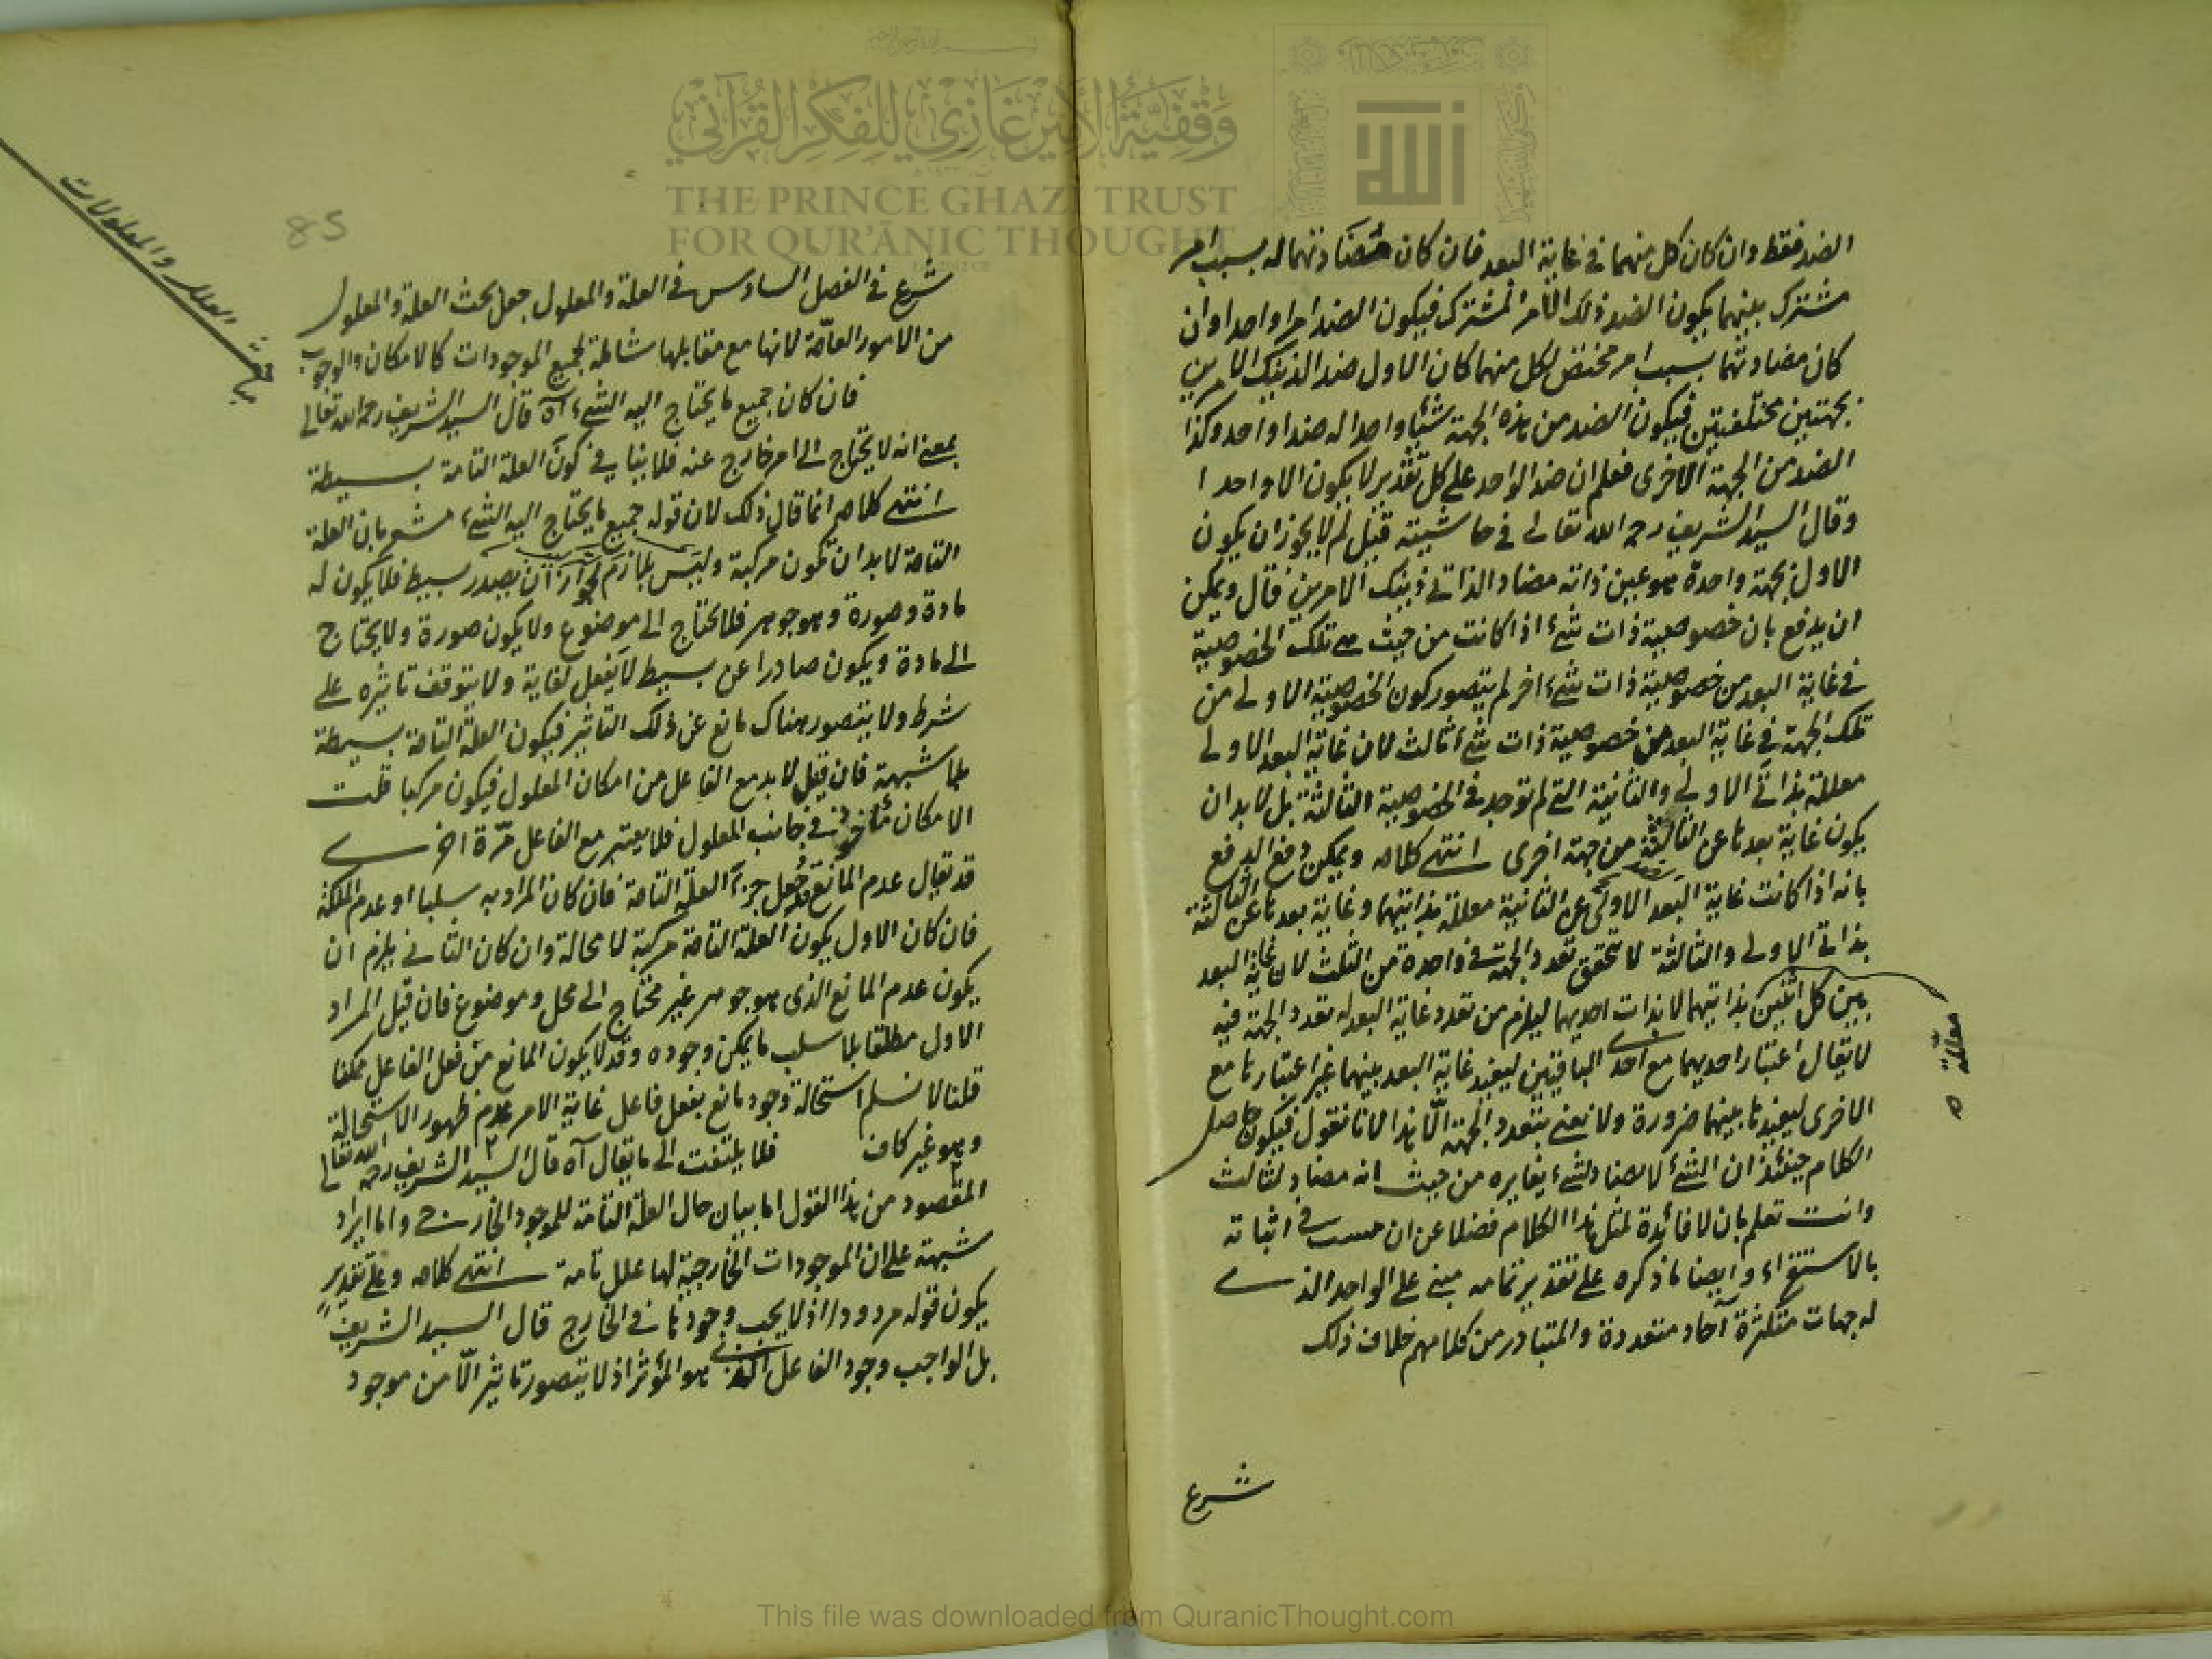 الضد فقط وان كان كل منهما في غاية البعد فان كان مضادتهما له بسبب امر
مشترك بينهما يكون الضد ذلك الامر المشترك فيكون الضد امرا واحدا وان
كان مضادتهما بسبب امر مختص لكل منهما كان الاول ضد الذينك الامرين
بجهتين مختلفتين فيكون الضد من هذه الجهة شيئا واحدا له ضدا واحد وكذا
الضد من الجهة الاخرى فعلم ان ضد الواحد على كل تقدير لا يكون الا واحدا
وقال السيد الشريف رحمه الله تعالى في حاشيته قيل لم لا يجوز ان يكون
الاول بجهة واحدة هو عين ذاته مضاد الذاتي ذينك الامرين قال ويمكن
ان يدفع بان خصوصية ذات شيء اذا كانت من حيث هي تلك الخصوصية
في غاية البعد من خصوصية ذات شيء اخر لم يتصور كون الخصوصية الاولى من
تلك الجهة في غاية البعد من خصوصية ذات شيء ثالث لان غاية البعد الاولى
معللة بذاتي الاولى والثانية التي لم توجد في الخصوصية الثالثة بل لا بد ان
يكون غاية بعدها عن الثالثة من جهة اخرى انتهى كلامه ويمكن دفع الدفع
بانه اذا كانت غاية البعد الاولى عن الثانية معللة بذاتيهما وغاية بعدها عن الثالثة
بذاتي الاولى والثالثة لا تحقق تعدد الجهة في واحدة من الثلث لان غاية البعد
بين كل اثنين بذاتيهما لا بذات احديهما ليلزم من تعدد غاية البعد له تعدد الجهة فيه
لا يقال اعتبار احديهما مع احدى الباقيتين ليفيد غاية البعد بينهما غير اعتبارها مع
الاخرى ليفيدها بينهما ضرورة ولا نعني بتعدد الجهة الا هذا لانا نقول فيكون حاصل
الكلام حينئذ ان الشيء لا يضاد لشيء يغايره من حيث انه مضاد لثالث
وانت تعلم بان لا فائدة لمثل هذا الكلام فضلا عن ان في اثباته
بالاستقراء وايضا ما ذكره على تقدير تمامه مبني على الواحد الذي
له جهات متكثرة آحاد متعددة والمتبادر من كلامهم خلاف ذلك
شرع
العلل والمعلولات
85
شرع في الفصل السادس في العلة والمعلول جعل بحث العلة والمعلول
من الامور العامة لانها مع مقابلها شاملة لجميع الموجودات كالامكان والوجوب
فان كان جميع ما يحتاج اليه الشيء آه قال السيد الشريف رحمه الله تعالى
بمعنى انه لا يحتاج الى امر خارج عنه فلا ينافي كون العلة التامة بسيطة
انتهى كلامه انما قال ذلك لان قوله جميع ما يحتاج اليه الشيء مشعر بان العلة
التامة لا بد ان تكون مركبة وليس بلازم لجواز ان يصدر بسيط فلا يكون له
مادة وصورة وهو جوهر فلا يحتاج الى موضوع ولا يكون صورة ولا يحتاج
الى مادة ويكون صادرا عن بسيط لا يفعل لغاية ولا يتوقف تاثيره على
شرط ولا يتصور هناك مانع عن ذلك التاثير فيكون العلة التامة بسيطة
بلا شبهة فان قيل لا بد مع الفاعل من امكان المعلول فيكون مركبا قلت
الامكان مأخوذ في جانب المعلول فلا يعتبر مع الفاعل مرة اخرى
قد يقال عدم المانع قد جعل جزأ العلة التامة فان كان المراد به سلبا او عدم الملكة
فان كان الاول يكون العلة التامة مركبة لا محالة وان كان الثاني يلزم ان
يكون عدم المانع الذي هو جوهر غير محتاج الى محل وموضوع فان قيل المراد
الاول مطلقا بلا سلب ما يمكن وجوده وقد لا يكون المانع من فعل الفاعل ممكنا
قلنا لا نسلم استحالة وجود مانع بفعل فاعل غاية الامر عدم ظهور الاستحالة
وهو غير كاف فلا يلتفت الى ما يقال آه قال السيد الشريف رحمه الله تعالى
المقصود من هذا القول اما بيان حال العلة التامة للموجود الخارجي واما ايراد
شبهة على ان الموجودات الخارجية لها علل تامة انتهى كلامه وعلى تقدير
يكون قوله مردودا اذ لا يجب وجودها في الخارج قال السيد الشريف
بل الواجب وجود الفاعل الذي هو المؤثر اذ لا يتصور تاثير الا من موجود
وقفية الأمير غازي للفكر القرآني
THE PRINCE GHAZI TRUST
FOR QUR'ĀNIC THOUGHT
الله
This file was downloaded from QuranicThought.com